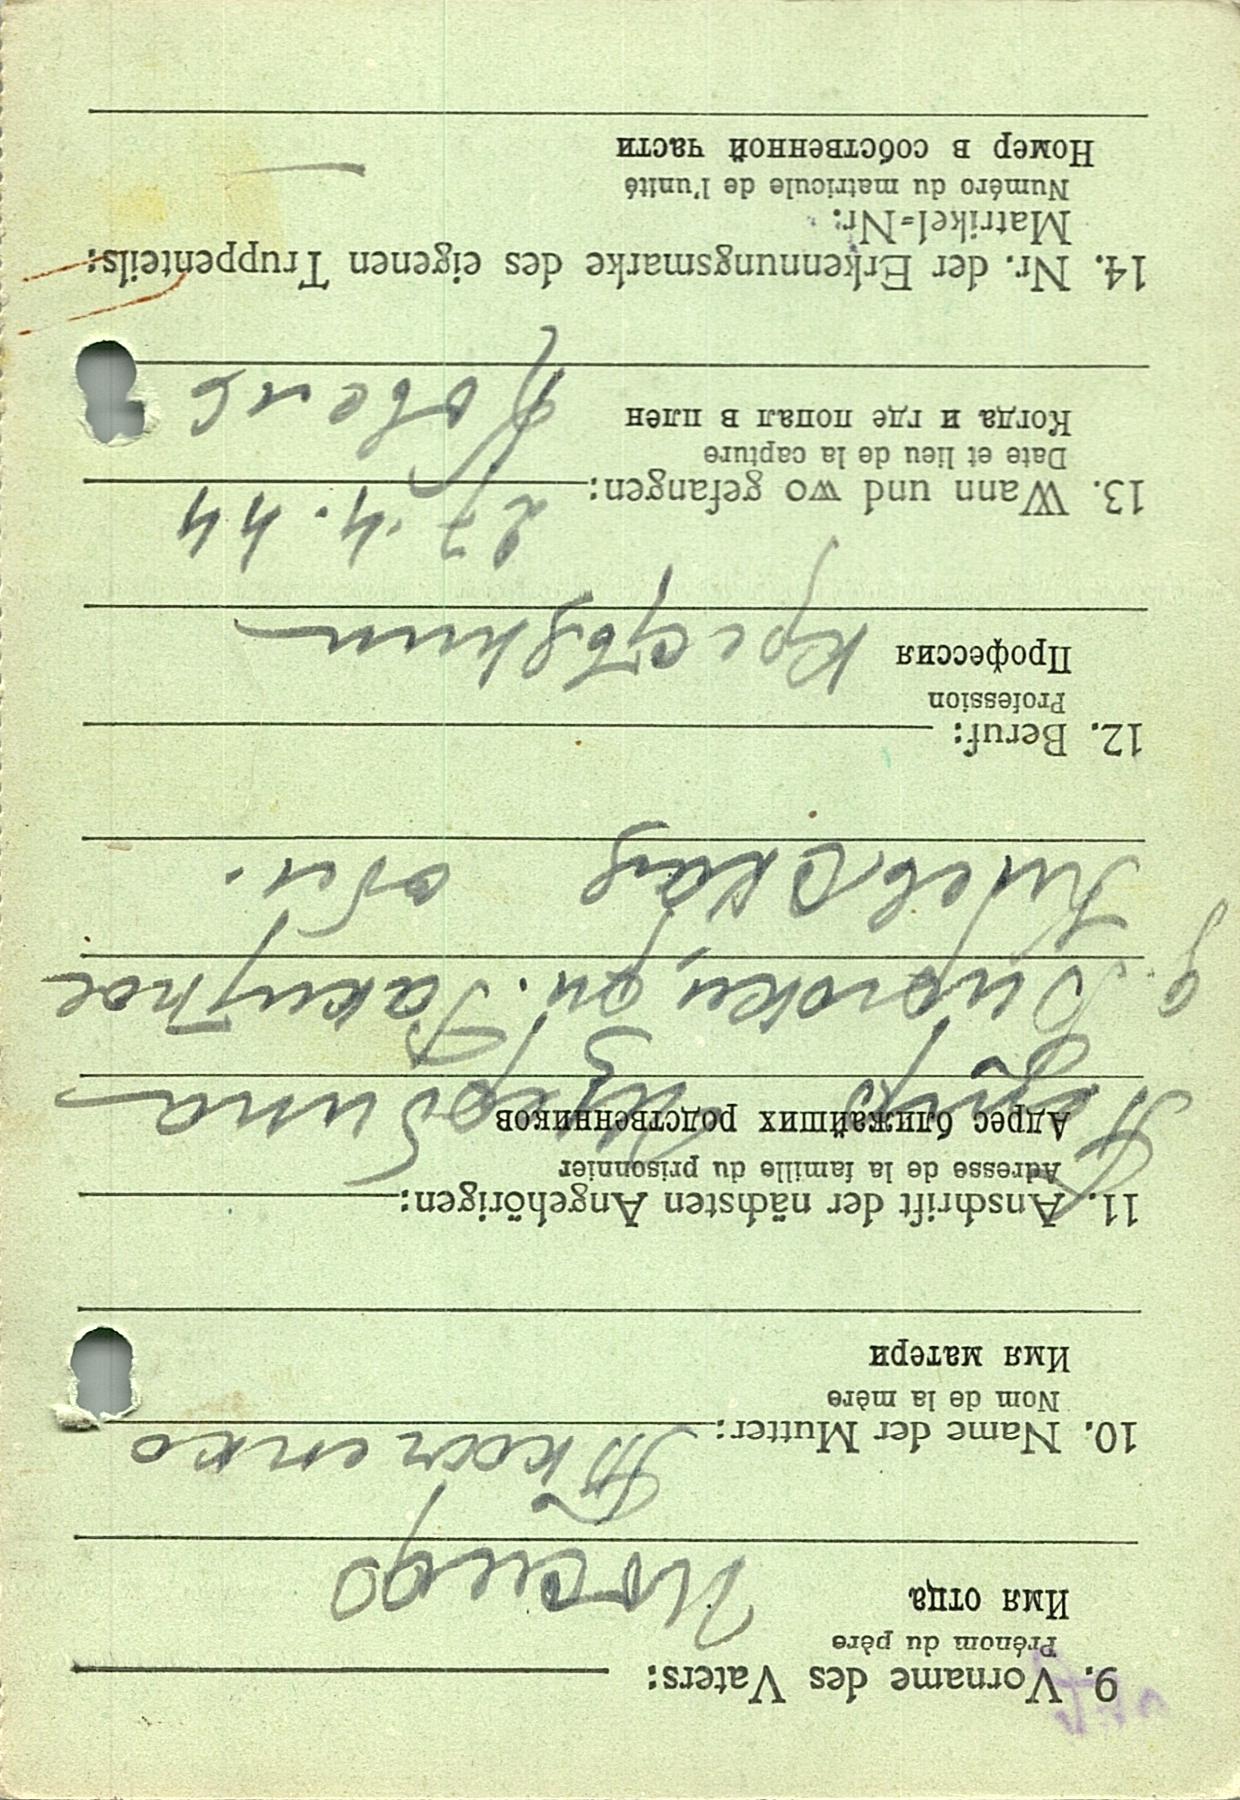 9. Vorname des Vaters:
Prénom du père
Имя отца Иосиф
Ткаченко
10. Name der Mutter:
Nom de la mère
Имя матери
11. Anschrift der nächsten Angehörigen:
Adresse de la famille du prisonnier
Адрес ближайших родственников
Киевская обл.
12. Beruf:
Profession
Профессия крестьянин
27.4.44
13. Wann und wo gefangen:
Date et lieu de la capture
Когда и где попал в плен Ковель
14. Nr. der Erkennungsmarke des eigenen Truppenteils:
Matrikel=Nr:
Numéro du matricule de l'unité
Номер в собственной части —